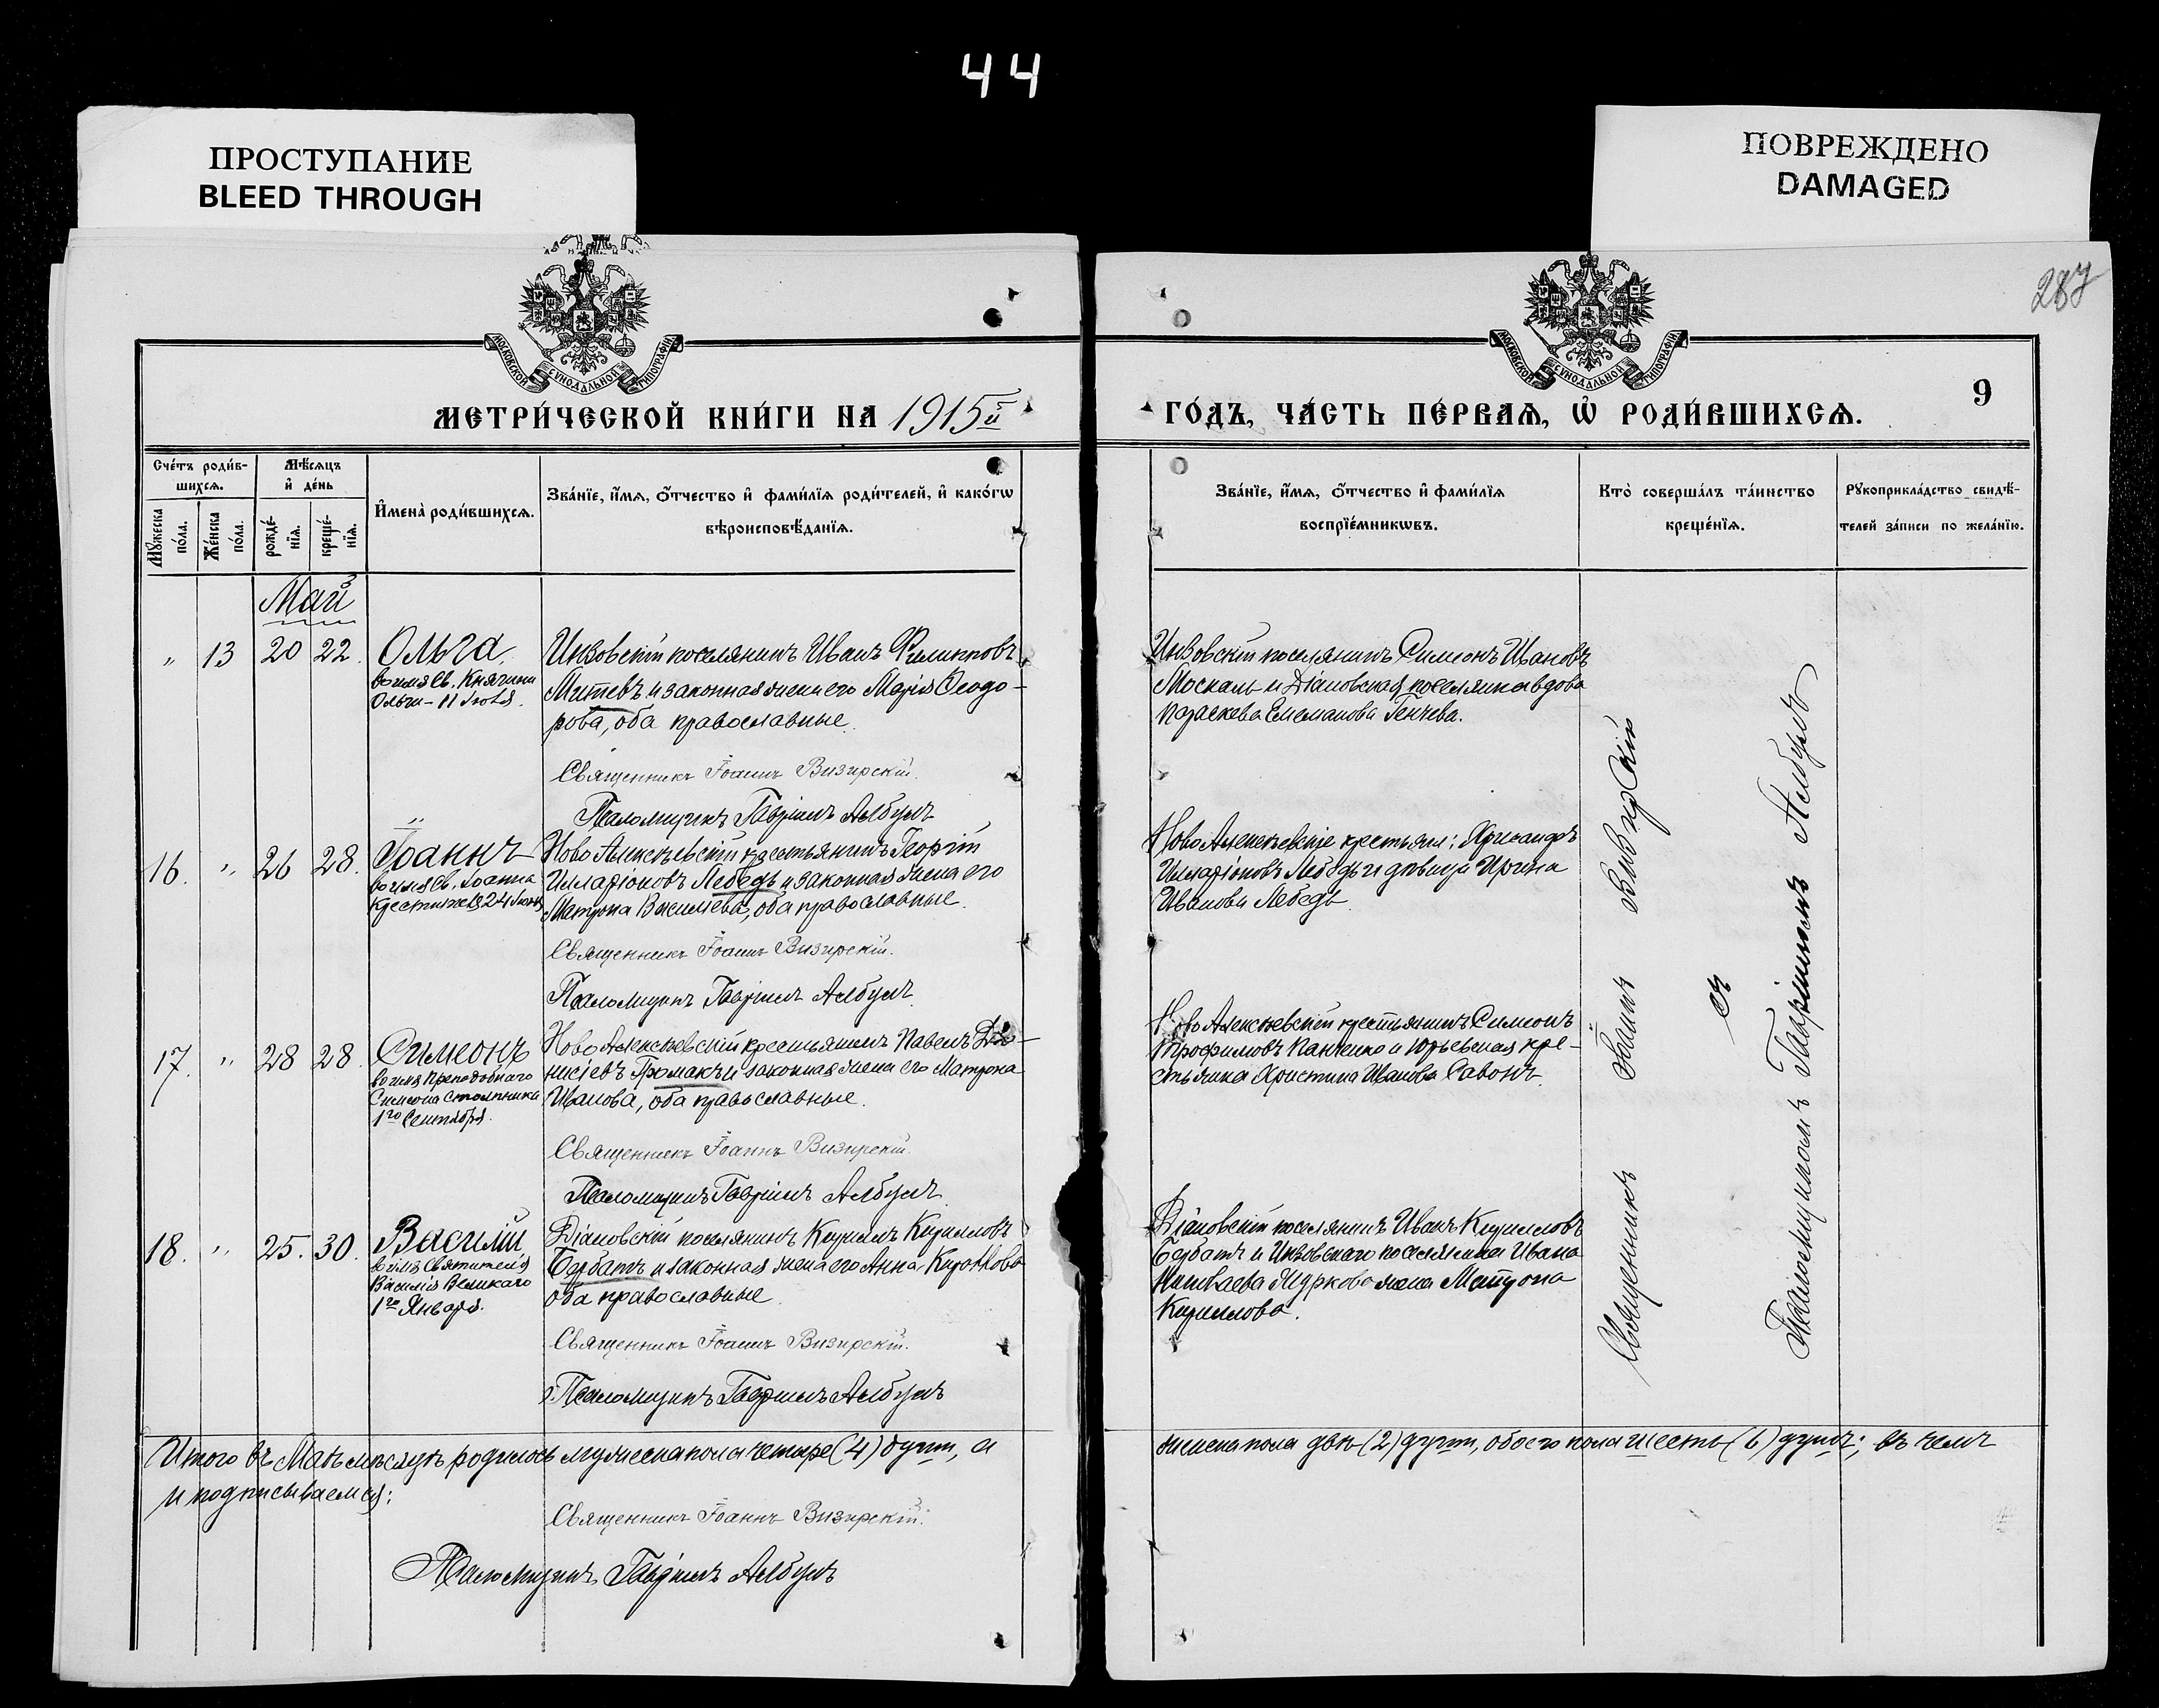 44
ПРОСТУПАНИЕ
BLEED THROUGH
ПОВРЕЖДЕНО
DAMAGED
287
МОСКОВСКОЙ СѴНОДАЛЬНОЙ ТИПОГРАФІИ
МОСКОВСКОЙ СѴНОДАЛЬНОЙ ТИПОГРАФІИ
9
МЕТРИ́ЧЕСКОЙ КНИ́ГИ НА 1915й
ГО́ДЪ, ЧА́СТЬ ПЕ́РВАѦ, Ѡ҆ РОДИ́ВШИХСѦ.
Сче́тъ роди́в-
шихсѧ.
Мѣ́сѧцъ
и҆ де́нь
Мꙋ́жеска
по́ла.
Же́нска
по́ла.
рожде́-
нїѧ.
креще́-
нїѧ.
И҆мена̀ роди́вшихсѧ.
Зва́нїе, и҆́мѧ, ѻ҆́тчество и҆ фами́лїѧ роди́телей, и҆ како́гѡ
вѣроисповѣ́данїѧ.
Зва́нїе, и҆́мѧ, ѻ҆́тчество и҆ фами́лїѧ
воспрїе́мникѡвъ.
Кто̀ соверша́лъ та́инство
креще́нїѧ.
Рꙋкоприкла́дство свидѣ́-
телей за́писи по жела́нїю.
Май
" 13 20 22. Ольга.
во имя св. Княгини
Ольги - 11 Іюля.
Инзовскій поселянинъ Иванъ Филипповъ
Митевъ и законная жена его Марія Ѳеодо-
рова, оба православные.
Священникъ Іоаннъ Визирскій.
Псаломщикъ Гавріилъ Албулъ
Инзовскій поселянинъ Симеонъ Ивановъ
Москаль и Діановская поселянка вдова
Параскева Генчева.
16. " 26 28. Іоаннъ
во имя св. Іоанна
Крестителя 24 Іюня
Ново Алексѣевскій крестьянинъ Георгій
Илларіоновъ Лебедь и законная жена его
Матрона Васильева, оба православные.
Священникъ Іоаннъ Визирскій.
Псаломщикъ Гавріилъ Албулъ.
Ново Алексѣевскіе крестьяне: Хрисанфъ
Илларіоновъ Лебедь и дѣвица Ирина
Иванова Лебедь.
17. " 28 28. Симеонъ
во имя Преподобнаго
Симеона Столпника
1го Сентября.
Ново Алексѣевскій крестьянинъ Павелъ Діо-
нисіевъ Громакъ и законная жена его Матрона
Иванова, оба православные.
Священникъ Іоаннъ Визирскій.
Псаломщикъ Гавріилъ Албулъ.
Ново Алексѣевскій крестьянинъ Симеонъ
Трофимовъ Панченко и Юрьевская кре-
стьянка Христина Иванова Савонъ.
18. " 25. 30. Василій,
во имя Святителя
Василія Великаго
1го Января.
Діановскій поселянинъ Кириллъ Кирилловъ
Барбатъ и законная жена его Анна
оба православные.
Священникъ Іоаннъ Визирскій.
Псаломщикъ Гавріилъ Албулъ
Діановскій поселянинъ Иванъ Кирилловъ
Барбатъ и Инзовскаго поселянина Ивана
Николаева жена Матрона
Кириллова.
Священникъ Іоаннъ Визирскій
съ
Псаломщикомъ Гавріиломъ Албулъ
Итого въ Маѣ мѣсяцѣ родилось мужеска пола четыре (4) душъ, а
женска пола двѣ (2) душъ, обоего пола шесть (6) душъ; въ чемъ
и подписываемся:
Священникъ Іоаннъ Визирскій.
Псаломщикъ Гавріилъ Албулъ